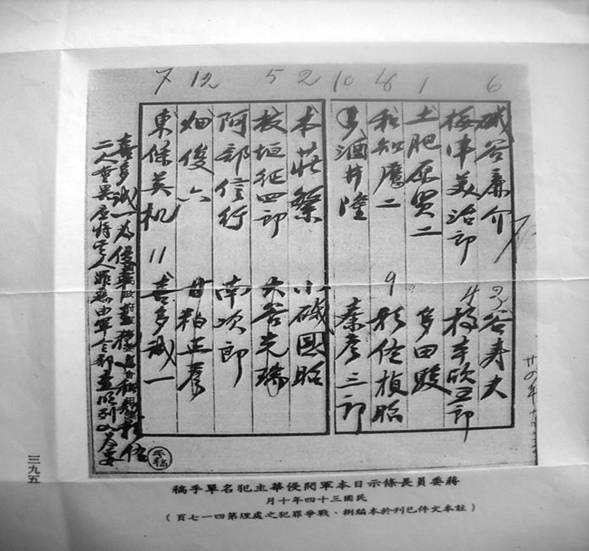 7 12 5 2 10 8 1 6
磯谷廉介 3 谷寿夫
梅津美治郎 4 橋本欣五郎
土肥原賢二 多田駿
和知鷹二 9 影佐禎昭
酒井隆 秦彥三郎
本莊繁 小磯國昭
板垣征四郎 大谷光瑞
阿部信行 南次郎
畑俊六 甘粕正彥
東條英机 11 喜多誠一
喜多誠一為侵華
三九五
蔣委員長條示日本軍閥侵華主犯名單手稿
民國三十四年十月
（註本文件已列於本編捌、戰爭罪犯之處理第四一七頁）